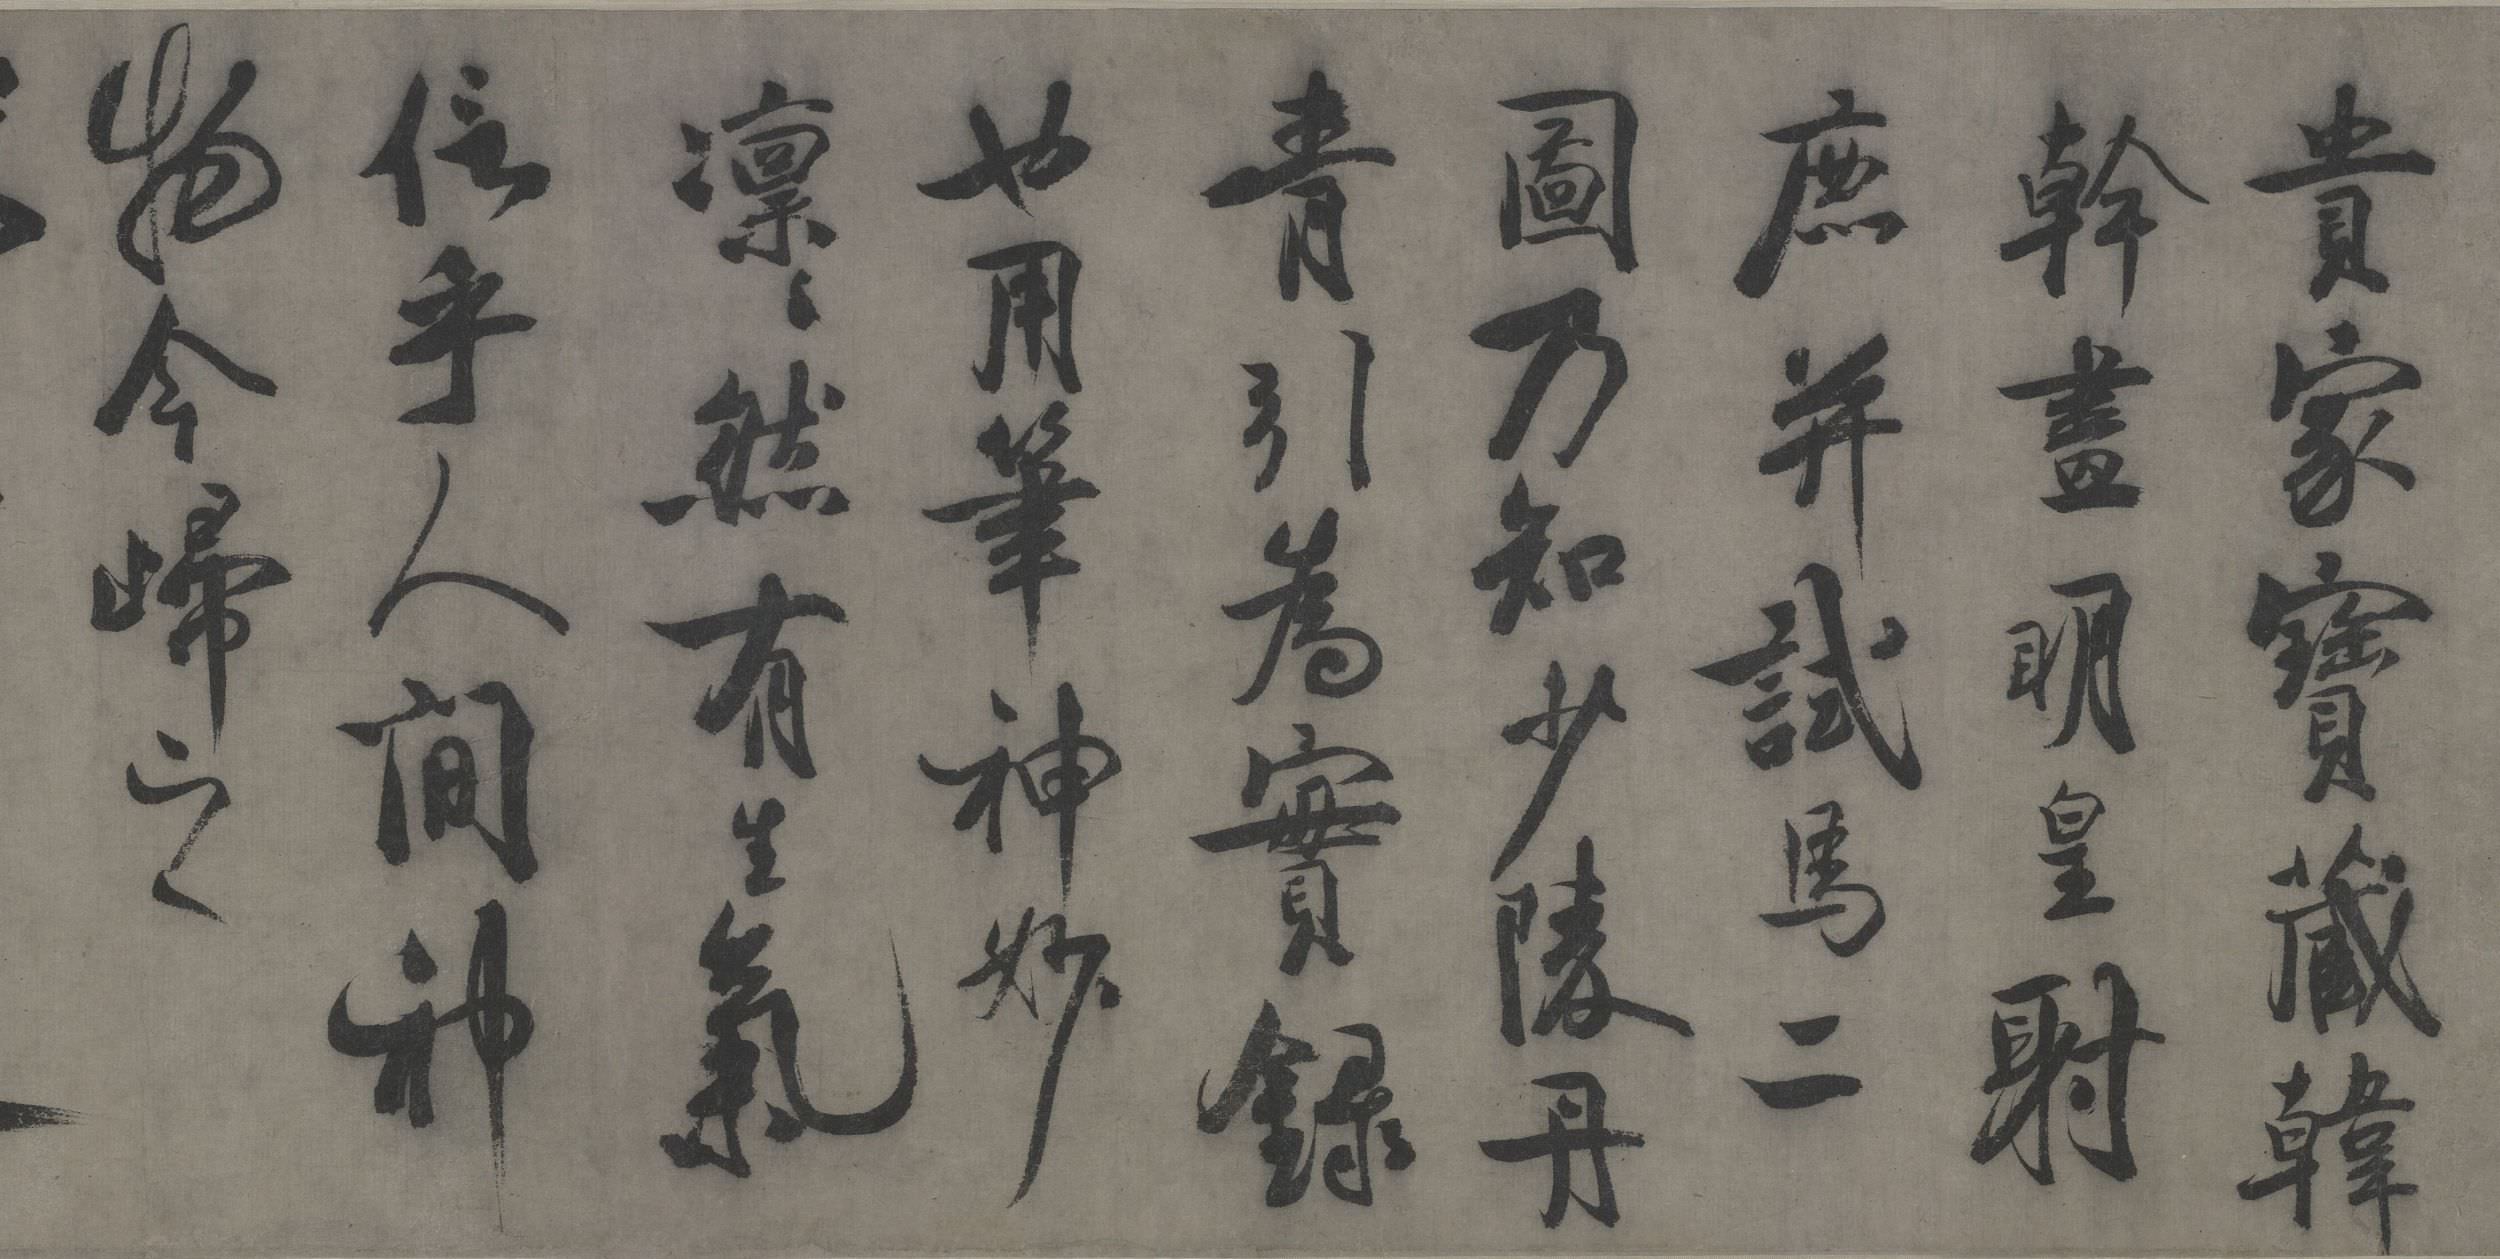 貴家寶藏韓
幹畫明皇射
鹿并試馬二
圖乃知少陵丹
青引為實錄
也用筆神妙
凜〻然有生氣
信乎人間神
物今歸之